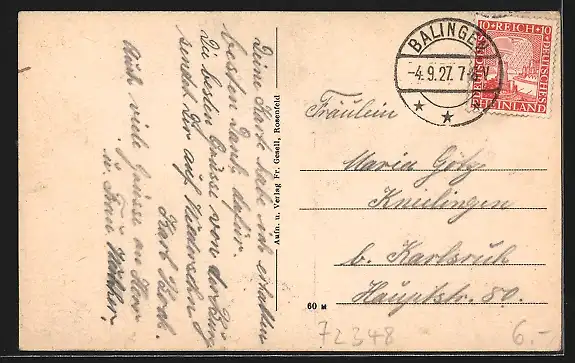 Deine Karte habe ich erhalten
besten Dank dafür.
Die besten Grüsse von der Burg
sendet Dir auf Wiedersehn
Karl Bock.
Auch viele Grüsse an Herr
u. Frau
Aufn. u. Verlag Fr. Gesell, Rosenfeld
60 M
BALINGEN
-4.9.27. 7-
10 REICH 10
DEUTSCHES
RHEINLAND
Fräulein
Maria Götz
Knielingen
b. Karlsruh
Hauptstr. 80.
72348
6.-